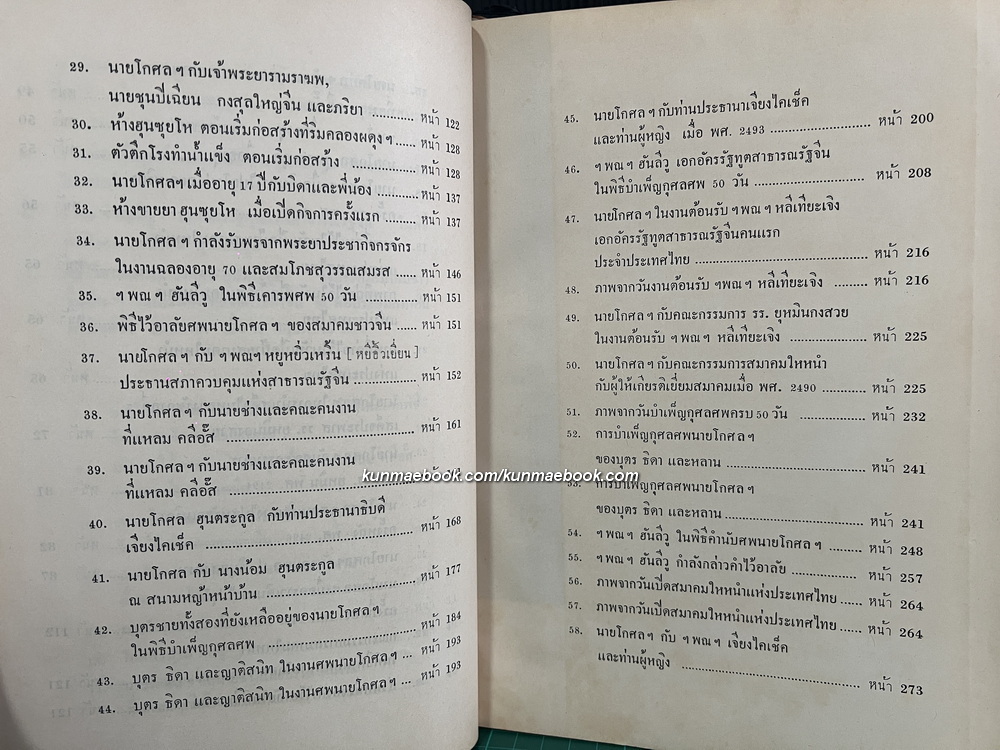 29. นายโกศล ฯ กับเจ้าพระยารามราฆพ,
นายชุนปีเฉียน กงสุลใหญ่จีน และภริยา ............ หน้า 122
30. ห้างฮุนซุยโห ตอนเริ่มก่อสร้างที่ริมคลองผดุง ฯ ...... หน้า 128
31. ตัวตึกโรงทำน้ำแข็ง ตอนเริ่มก่อสร้าง .................. หน้า 128
32. นายโกศลฯ เมื่ออายุ 17 ปีกับบิดาและพี่น้อง ............ หน้า 137
33. ห้างขายยา ฮุนซุยโห เมื่อเปิดกิจการครั้งแรก ......... หน้า 137
34. นายโกศล ฯ กำลังรับพรจากพระยาประชากิจกรจักร
ในงานฉลองอายุ 70 และสมโภชสุวรรณสมรส ...... หน้า 146
35. ฯ พณ ฯ ฮันลีวู ในพิธีเคารพศพ 50 วัน ............... หน้า 151
36. พิธีไว้อาลัยศพนายโกศล ฯ ของสมาคมชาวจีน ...... หน้า 151
37. นายโกศล ฯ กับ ฯ พณฯ หยูหยิ่วเหริน [ หยีอิ้วเยี่ยน ]
ประธานสภาควบคุมแห่งสาธารณรัฐจีน .................. หน้า 152
38. นายโกศล ฯ กับนายช่างและคณะคนงาน
ที่แหลม คลีอั๊ส .......................................... หน้า 161
39. นายโกศล ฯ กับนายช่างและคณะคนงาน
ที่แหลม คลีอั๊ส ..........................................
40. นายโกศล ฮุนตระกูล กับท่านประธานาธิบดี
เจียงไคเช็ค ............................................. หน้า 168
41. นายโกศล กับ นางน้อม ฮุนตระกูล
ณ สนามหญ้าหน้าบ้าน .................................... หน้า 177
42. บุตรชายทั้งสองที่ยังเหลืออยู่ของนายโกศล ฯ
ในพิธีบำเพ็ญกุศลศพ .................................... หน้า 184
43. บุตร ธิดา และญาติสนิท ในงานศพนายโกศล ฯ ... หน้า 193
44. บุตร ธิดา และญาติสนิท ในงานศพนายโกศล ฯ ... หน้า 193
45. นายโกศล ฯ กับท่านประธานาเจียงไคเช็ค
และท่านผู้หญิง เมื่อ พศ. 2493 ........................ หน้า 200
46. ฯ พณ ฯ ฮันลีวู เอกอัครรัฐทูตสาธารณรัฐจีน
ในพิธีบำเพ็ญกุศลศพ 50 วัน ........................... หน้า 208
47. นายโกศล ฯ ในงานต้อนรับ ฯ พณ ฯ หลีเทียะเจิง
เอกอัครรัฐทูตสาธารณรัฐจีนคนแรก
ประจำประเทศไทย ....................................... หน้า 216
48. ภาพจากวันงานต้อนรับ ฯพณ ฯ หลีเทียะเจิง ......... หน้า 216
49. นายโกศล ฯ กับคณะกรรมการ รร. ยุหมินกงสวย
ในงานต้อนรับ ฯ พณ ฯ หลีเทียะเจิง .................. หน้า 225
50. นายโกศล ฯ กับคณะกรรมการสมาคมไหหนำ
กับผู้ให้เกียรติเยี่ยมสมาคมเมื่อ พศ. 2490 ............ หน้า 225
51. ภาพจากวันบำเพ็ญกุศลศพครบ 50 วัน .................. หน้า 232
52. การบำเพ็ญกุศลศพนายโกศล ฯ
ของบุตร ธิดา และหลาน ................................. หน้า 241
53. การบำเพ็ญกุศลศพนายโกศล ฯ
ของบุตร ธิดา และหลาน ................................. หน้า 241
54. ฯ พณ ฯ ฮันลีวู ในพิธีคำนับศพนายโกศล ฯ ......... หน้า 248
55. ฯ พณ ฯ ฮันลีวู กำลังกล่าวคำไว้อาลัย ............... หน้า 257
56. ภาพจากวันเปิดสมาคมไหหนำแห่งประเทศไทย ...... หน้า 264
57. ภาพจากวันเปิดสมาคมไหหนำแห่งประเทศไทย ...... หน้า 264
58. นายโกศล ฯ กับ ฯ พณ ฯ เจียงไคเช็ค
และท่านผู้หญิง .......................................... หน้า 273
kunmaebook.com/kunmaebook.com